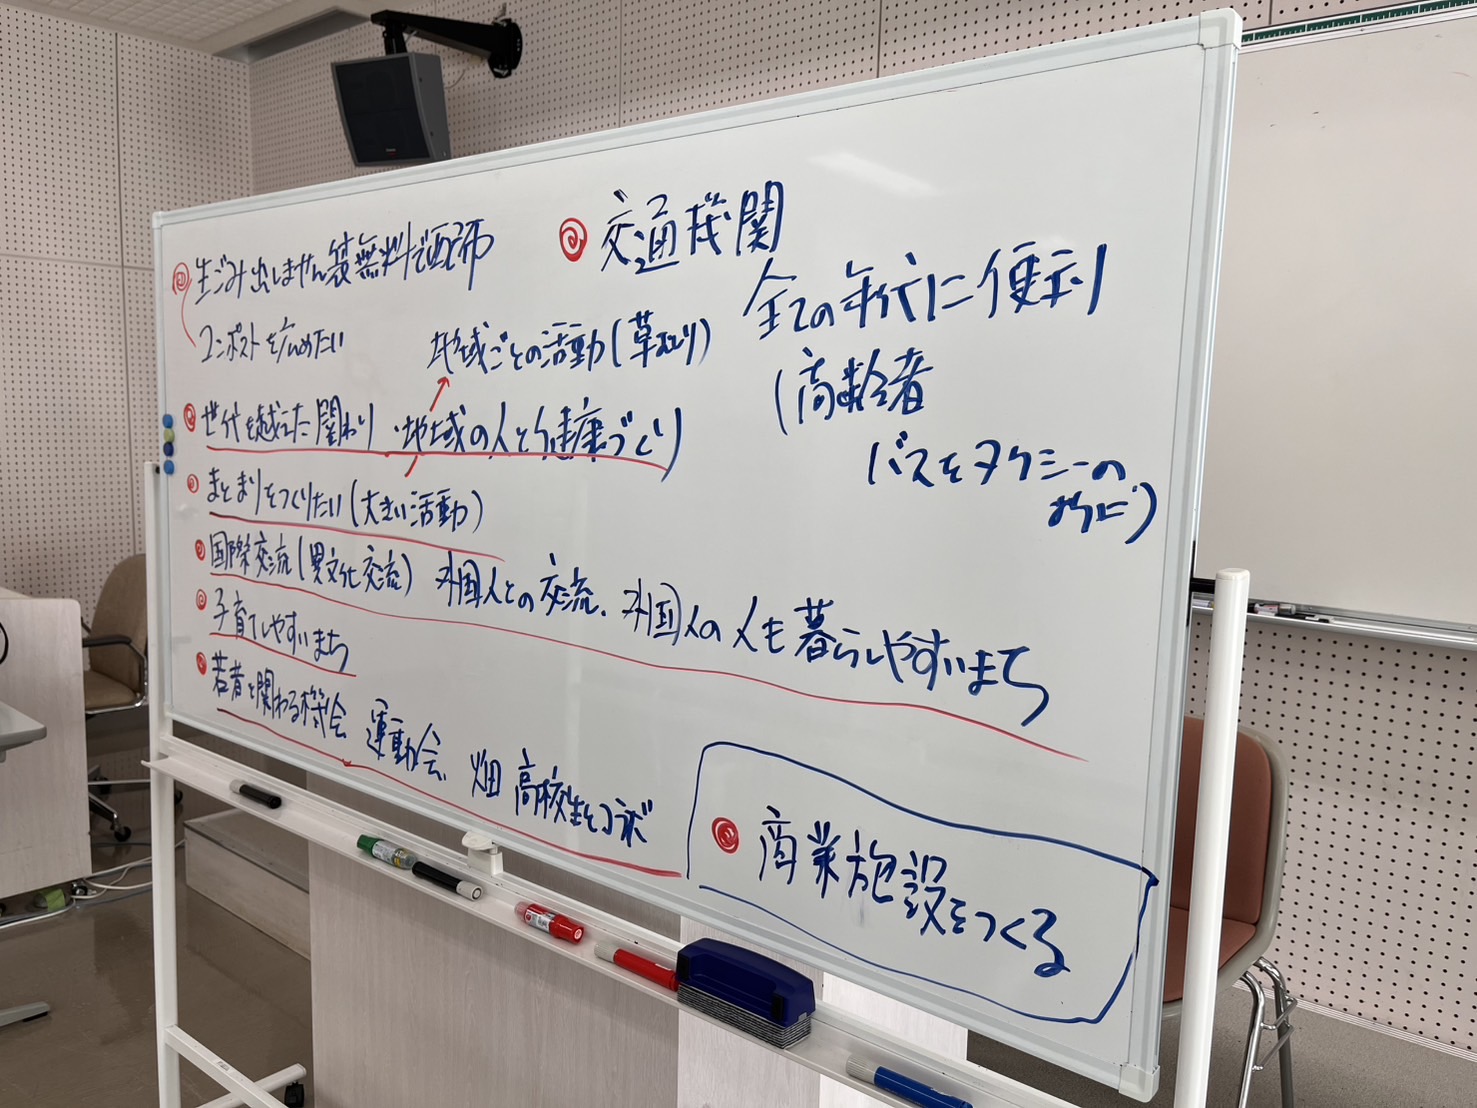 生ごみ出しません袋無料で配布
コンポストを広めたい
地域ごとの活動(草むしり)
世代を越えた関わり ・地域の人と健康づくり
まとまりをつくりたい(大きい活動)
国際交流(異文化交流) 外国人との交流、外国人の人も暮らしやすいまち
子育てしやすいまち
若者と関わる機会 運動会、畑 高校生とコラボ
交通機関
全ての年代に便利
(高齢者
バスをタクシーの
ように)
商業施設をつくる